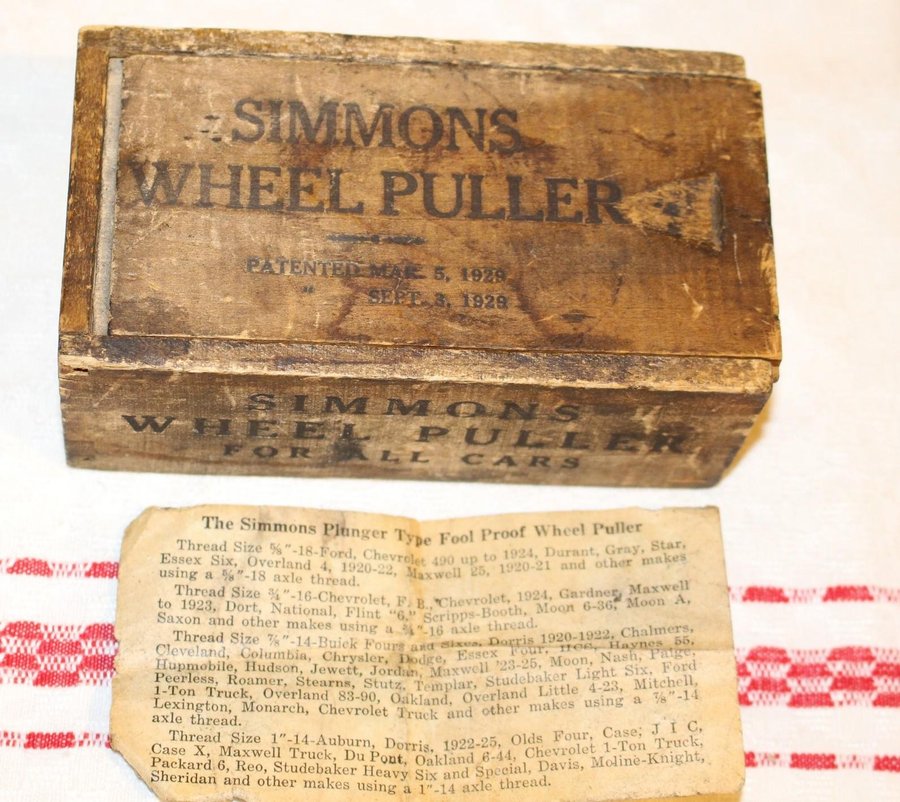 SIMMONS
WHEEL PULLER
PATENTED MAR. 5, 1929
" SEPT. 3, 1929
SIMMONS
WHEEL PULLER
FOR ALL CARS
The Simmons Plunger Type Fool Proof Wheel Puller
Thread Size ⅝"-18-Ford, Chevrolet 490 up to 1924, Durant, Gray, Star,
Essex Six, Overland 4, 1920-22, Maxwell 25, 1920-21 and other makes
using a ⅝"-18 axle thread.
Thread Size ¾"-16-Chevrolet, F. B., Chevrolet, 1924, Gardner, Maxwell
to 1923, Dort, National, Flint "6," Scripps-Booth, Moon 6-36, Moon A,
Saxon and other makes using a ¾"-16 axle thread.
Thread Size ⅞"-14-Buick Fours and Sixes, Dorris 1920-1922, Chalmers,
Cleveland, Columbia, Chrysler, Dodge, Essex Four, HCS, Haynes 55,
Hupmobile, Hudson, Jewett, Jordan, Maxwell '23-25, Moon, Nash, Paige,
Peerless, Roamer, Stearns, Stutz, Templar, Studebaker Light Six, Ford
1-Ton Truck, Overland 83-90, Oakland, Overland Little 4-23, Mitchell,
Lexington, Monarch, Chevrolet Truck and other makes using a ⅞"-14
axle thread.
Thread Size 1"-14-Auburn, Dorris, 1922-25, Olds Four, Case, J I C,
Case X, Maxwell Truck, Du Pont, Oakland 6-44, Chevrolet 1-Ton Truck,
Packard 6, Reo, Studebaker Heavy Six and Special, Davis, Moline-Knight,
Sheridan and other makes using a 1"-14 axle thread.